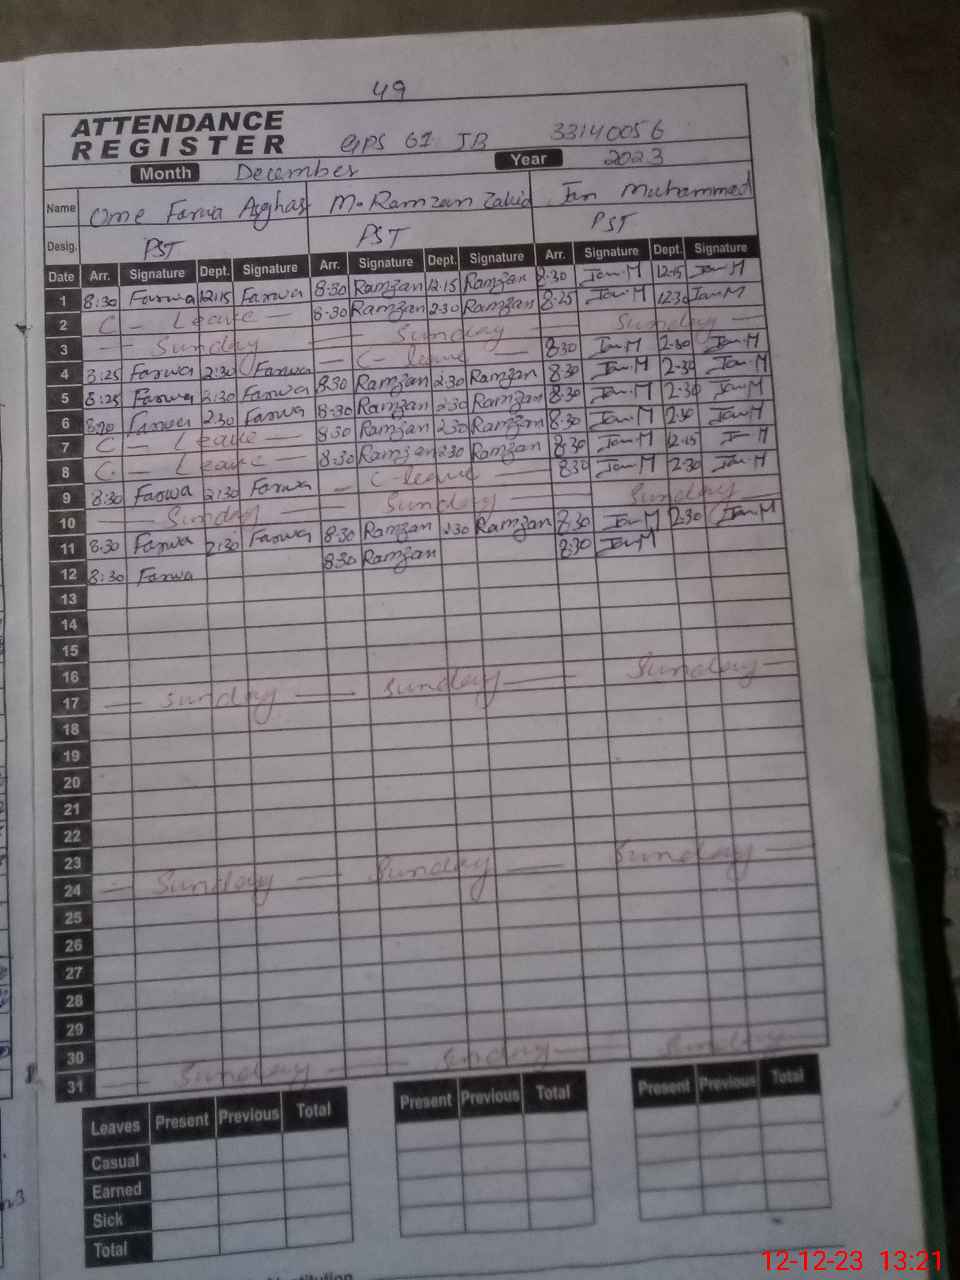 49
ATTENDANCE
REGISTER GPS 61 JB 33140056
Month December Year 2023
Name Ome Farwa Asghar M. Ramzan Zahid Jan Muhammad
Desig. PST PST PST
Date Arr. Signature Dept. Signature Arr. Signature Dept. Signature Arr. Signature Dept. Signature
1 8:30 Farwa 12:15 Farwa 8:30 Ramzan 12:15 Ramzan 8:30 Jan.M 12:15 Jan M
2 C - Leave - 8:30 Ramzan 2:30 Ramzan 8:25 Jan.M 12:30 Jan M
3 Sunday Sunday Sunday
4 8:25 Farwa 2:30 Farwa - C - leave - 8:30 Jan.M 2:30 Jan.M
5 8:25 Farwa 2:30 Farwa 8:30 Ramzan 2:30 Ramzan 8:30 Jan.M 2:30 Jan.M
6 8:20 Farwa 2:30 Farwa 8:30 Ramzan 2:30 Ramzan 8:30 Jan.M 2:30 Jan.M
7 C - Leave - 8:30 Ramzan 2:30 Ramzan 8:30 Jan.M 2:30 Jan.M
8 C - Leave - 8:30 Ramzan 2:30 Ramzan 8:30 Jan M 12:15 Jan M
9 8:30 Farwa 2:30 Farwa - C - leave - 8:30 Jan M 2:30 Jan.M
10 Sunday Sunday Sunday
11 8:30 Farwa 2:30 Farwa 8:30 Ramzan 2:30 Ramzan 8:30 Jan M 2:30 Jan.M
12 8:30 Farwa 8:30 Ramzan 8:30 Jan M
13
14
15
16
17 Sunday Sunday Sunday
18
19
20
21
22
23
24 Sunday Sunday Sunday
25
26
27
28
29
30
31 Sunday Sunday Sunday
Leaves Present Previous Total Present Previous Total Present Previous Total
Casual
Earned
Sick
Total
12-12-23 13:21